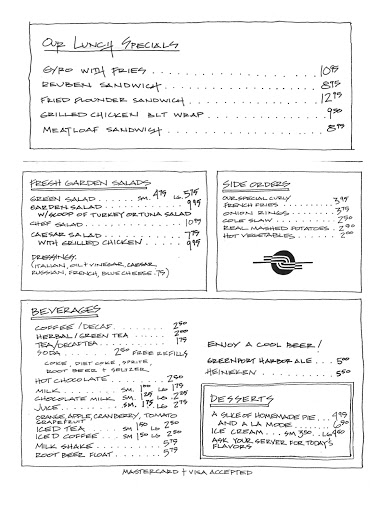 OUR LUNCH SPECIALS
GYRO WITH FRIES . . . . . . . . . . . . . . . . 10 95
REUBEN SANDWICH . . . . . . . . . . . . . . . 8 95
FRIED FLOUNDER SANDWICH . . . . . . . . . . . . 12 95
GRILLED CHICKEN BLT WRAP . . . . . . . . . . . 9 50
MEATLOAF SANDWICH . . . . . . . . . . . . . . 8 95
FRESH GARDEN SALADS
GREEN SALAD . . . . . SM. 4 75 LG. 5 75
GARDEN SALAD . . . . . . . . . . 9 95
W/SCOOP OF TURKEY OR TUNA SALAD
CHEF SALAD . . . . . . . . . . . 10 95
CAESAR SALAD . . . . . . . . . . 7 75
WITH GRILLED CHICKEN . . . . 9 95
DRESSINGS:
(ITALIAN, OIL + VINEGAR, CAESAR,
RUSSIAN, FRENCH, BLUE CHEESE .75)
SIDE ORDERS
OUR SPECIAL CURLY
FRENCH FRIES . . . . . . . 3 95
ONION RINGS . . . . . . . 3 75
COLE SLAW . . . . . . . . 2 50
REAL MASHED POTATOES . 2 90
HOT VEGETABLES . . . . . 2 00
BEVERAGES
COFFEE / DECAF . . . . . . . 2 50
HERBAL / GREEN TEA . . . . . 2 00
TEA / DECAF TEA . . . . . . . 1 75
SODA . . . . . . 2 50 FREE REFILLS
COKE, DIET COKE, SPRITE
ROOT BEER + SELTZER
HOT CHOCOLATE . . . . . . . 2 50
MILK . . . . . . . SM. 1 00 LG 1 75
CHOCOLATE MILK SM. 1 25 LG . 2 25
JUICE . . . . . . . SM. 1 75 LG . 2 75
ORANGE, APPLE, CRANBERRY, TOMATO
GRAPEFRUIT
ICED TEA . . . . . SM 1 50 LG . 2 50
ICED COFFEE . . . SM 1 50 LG . 2 50
MILK SHAKE . . . . . . . . . . 5 75
ROOT BEER FLOAT . . . . . . . 5 75
ENJOY A COOL BEER!
GREENPORT HARBOR ALE . . . 5 00
HEINEKEN . . . . . . . . . . . 5 50
DESSERTS
A SLICE OF HOMEMADE PIE . . 4 95
AND A LA MODE . . . . . . 6 50
ICE CREAM . . . SM 3 50 . . LG 4 50
ASK YOUR SERVER FOR TODAY'S
FLAVORS
MASTERCARD + VISA ACCEPTED